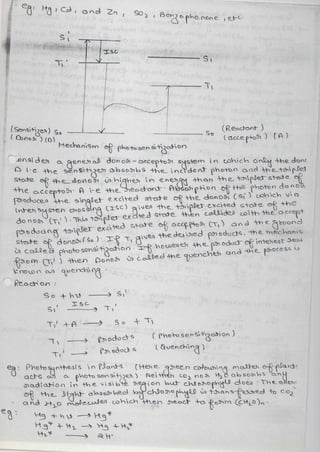 eg: Hg, Cd, and Zn, SO2, Benzophenone, etc
S1'
ISC
S1
T1'
T1
(Sensitizer) S0
S0 (Reactant)
(Donor) (D)
(acceptor) (A)
Mechanism of photosensitization
Consider a general donor-acceptor system in which only the donor
D i.e the sensitizer absorbs the incident photon and the triplet
state of the donor is higher in energy than the triplet state of
the acceptor A i.e the reactant. Absorption of the photon donor
produces the singlet excited state of the donor (S1') which via
intersystem crossing (ISC) gives the triplet excited state of the
donor (T1'). This triplet excited state then collides with the accept
producing triplet excited state of acceptor (T1) and the ground
state of donor (S0). If T1 gives the desired products, the mechanis
is called photosensitization. If however the product of interest
from (T1') then Donor is called the quencher and the process is
known as quenching
Reaction:
S0 + hυ → S1'
S1' ISC → T1'
T1' + A → S0 + T1
T1 → Products (Photosensitization)
T1' → Products (Quenching)
eg: Photosynthesis in Plants (Here green colouring matter of plants
acts as a photosensitizer) Neither CO2 nor H2O absorbs any
radiation in the visible region but chlorophyll does. The
of the light absorbed by chlorophyll is transferred to CO2
and H2O molecules which then react to form (CH2O)n.
eg: Hg + hυ → Hg*
Hg* + H2 → Hg + H2*
H2* → 2H